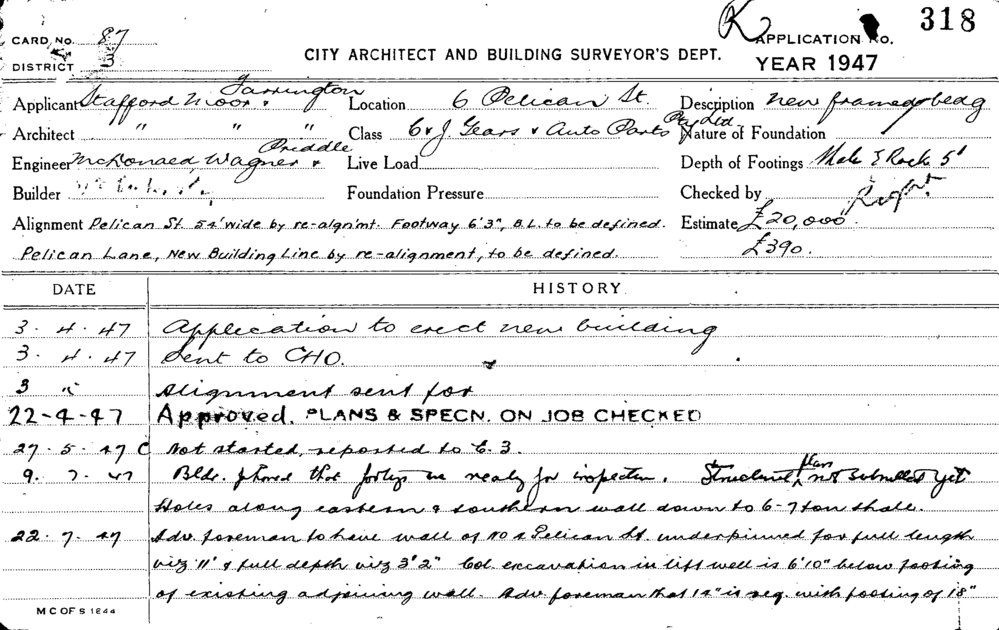 K2 318
CARD No. 87 APPLICATION No.
DISTRICT 3 CITY ARCHITECT AND BUILDING SURVEYOR'S DEPT. YEAR 1947
Farrington
Applicant Stafford Moor & Location 6 Pelican St. Description New framed bldg
Architect " " " Class C & J. Gears & Auto Parts Pty Ltd. Nature of Foundation
Priddle
Engineer McDonald Wagner & Live Load Depth of Footings Shale & Rock 5'
Builder Foundation Pressure Checked by
Alignment Pelican St 54' wide by re-algn'mt. Footway 6'3", B.L. to be defined. Estimate £20,000
Pelican Lane, New Building Line by re-alignment, to be defined. £390.
DATE HISTORY
3. 4. 47 Application to erect new building
3. 4. 47 Sent to CHO.
3 " Alignment sent for
22-4-47 Approved. PLANS & SPECN. ON JOB CHECKED
27. 5. 47 C Not started, reported to C. 3.
plan
9. 7. 47 Bldr. phoned that footings are ready for inspection. Structural not submitted yet
Holes along eastern & southern wall down to 6-7 ton shale.
22. 7. 47 Adv. foreman to have wall of No 2 Pelican St. underpinned for full length
viz 11' & full depth viz 3'2" Col. excavation in lift well is 6'10" below footing
of existing adjoining wall. Adv foreman that 14" is req. with footing of 18"
M C OF S 1244